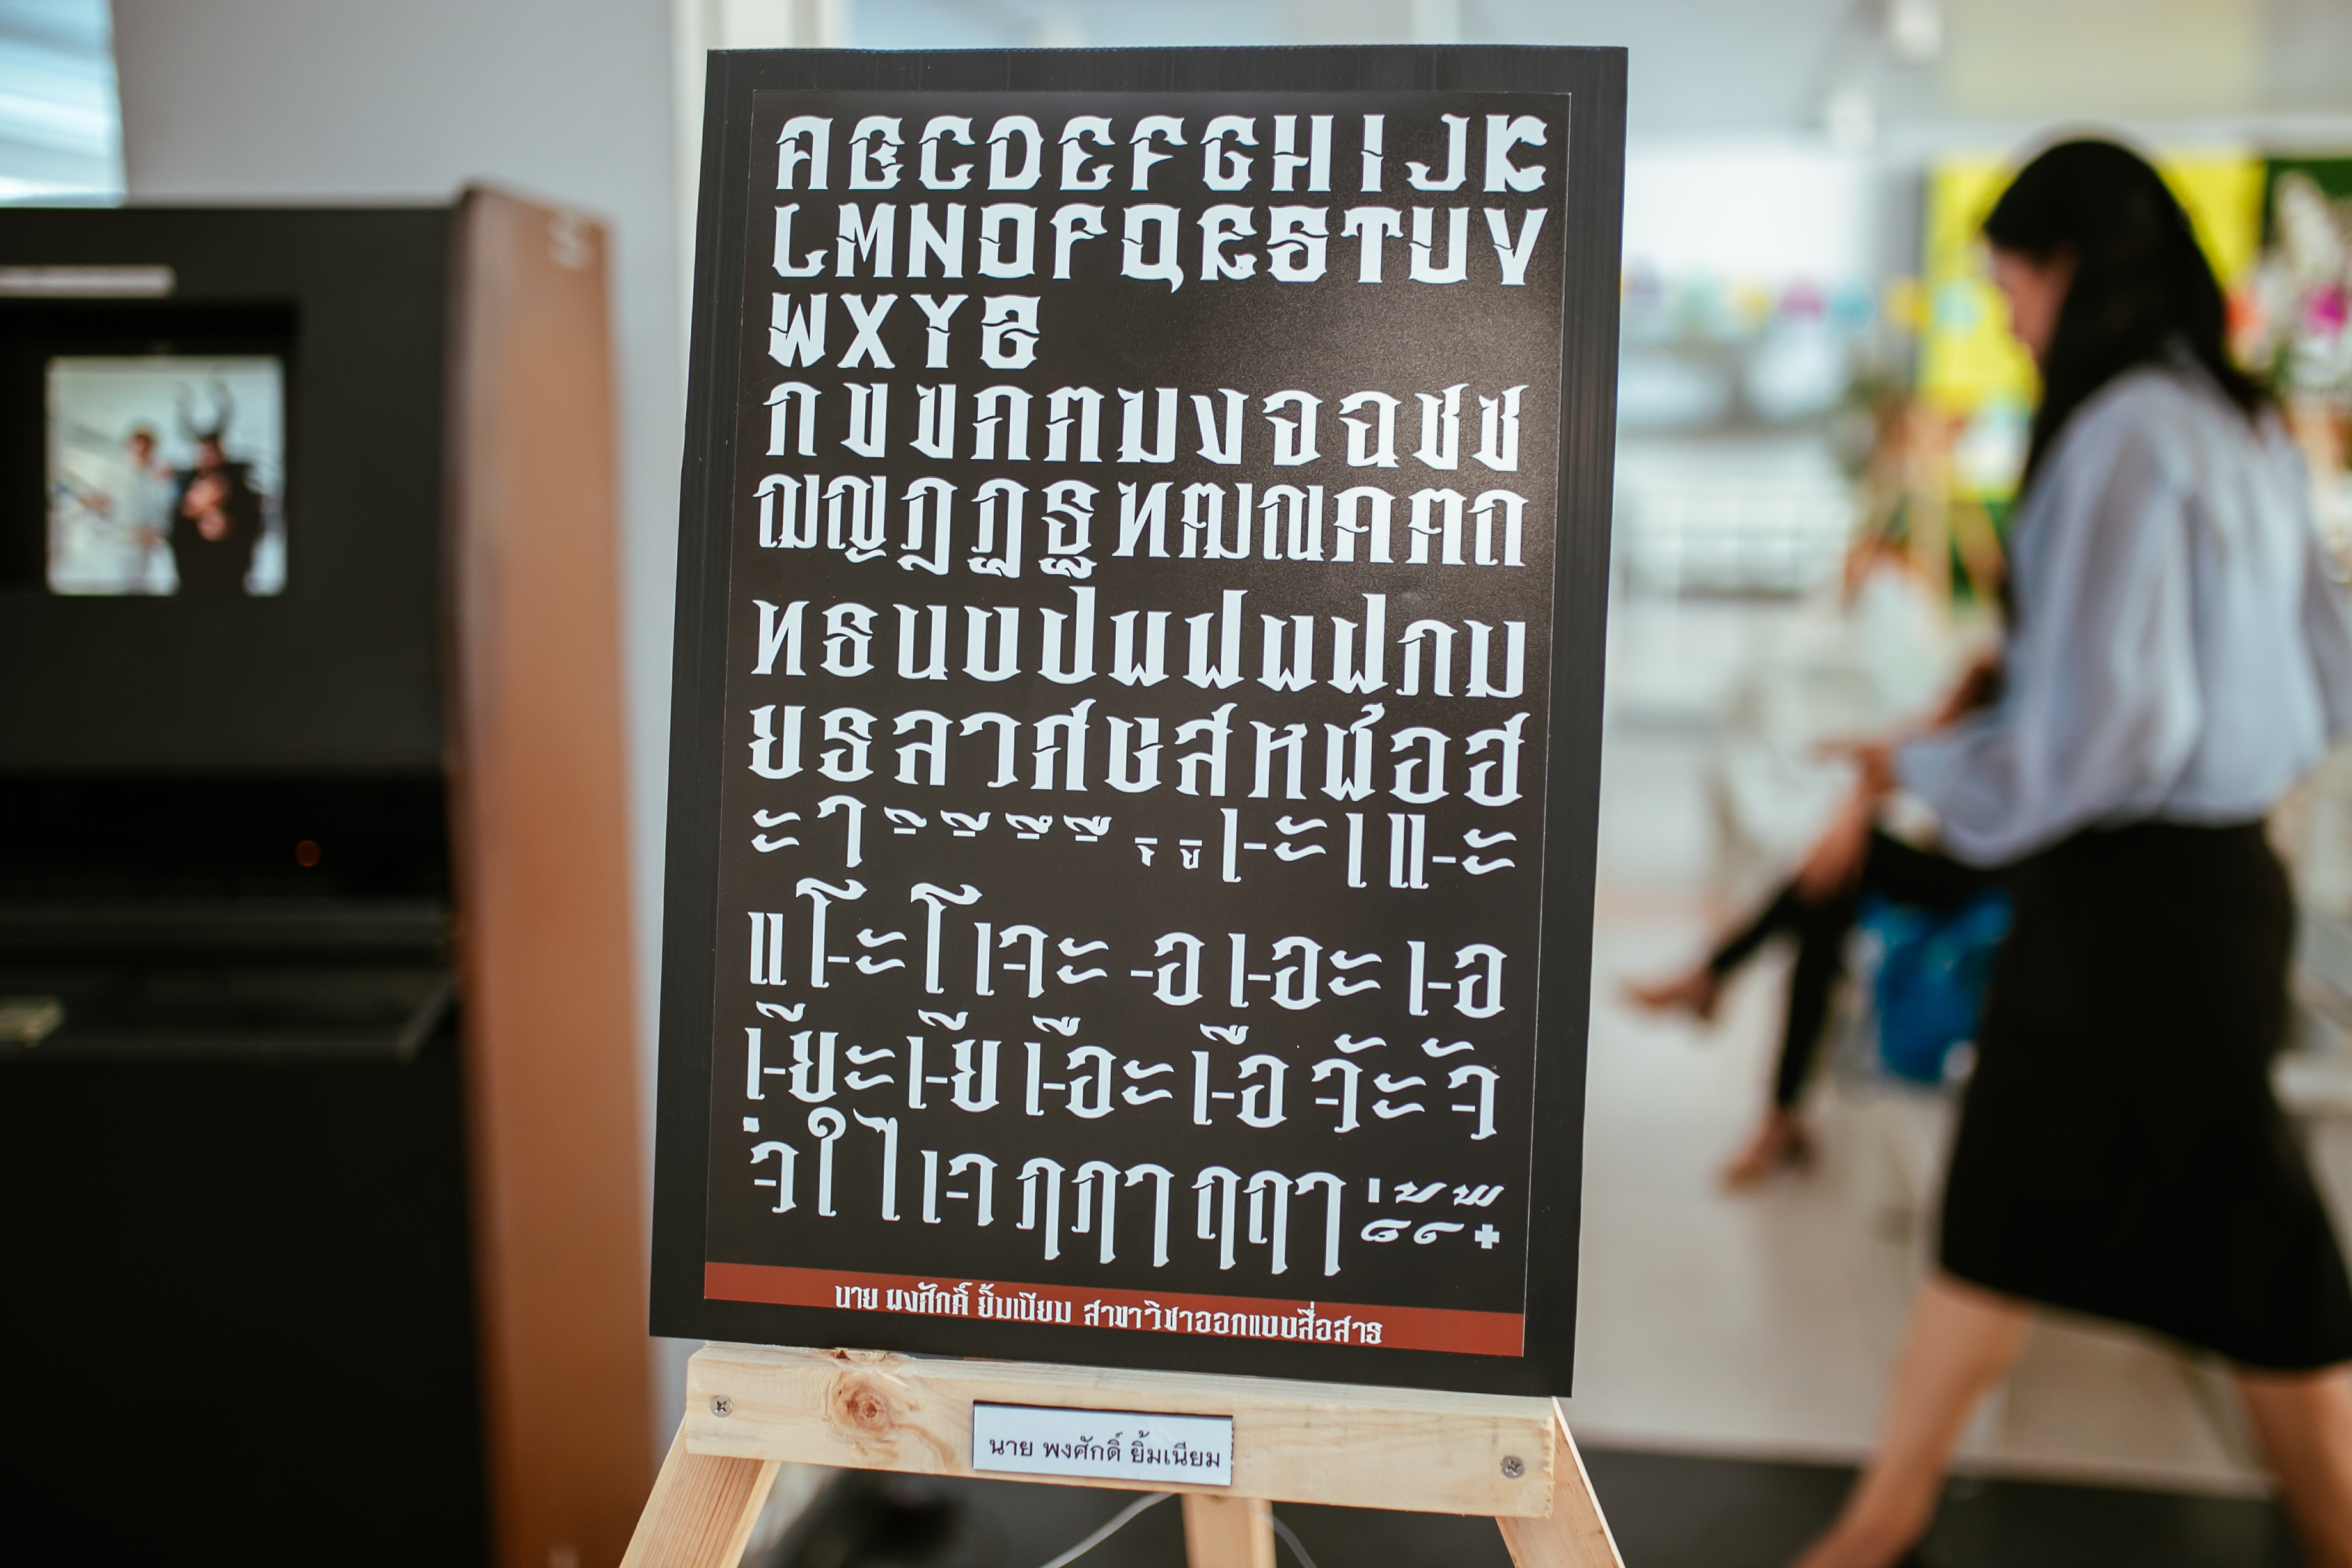 ABCDEFGHIJK
LMNOPQRSTUV
WXYZ
กขฃคฅฆงจฉชซ
ฌญฎฏฐฑฒณดตถ
ทธนบปผฝพฟภม
ยรลวศษสหฬอฮ
ะ า ิ ี ึ ื ุ ู เ-ะ เ แ-ะ
แ โ-ะ โ เ-าะ -อ เ-อะ เ-อ
เ-ียะ เ-ีย เ-ือะ เ-ือ -ัวะ -ัว
ใ ไ เ-า ฤ ฤๅ ฦ ฦๅ ่ ้ ๊ ็ ๋
นาย พงศักดิ์ ยิ้มเนียม สาขาวิชาออกแบบสื่อสาร
นาย พงศักดิ์ ยิ้มเนียม